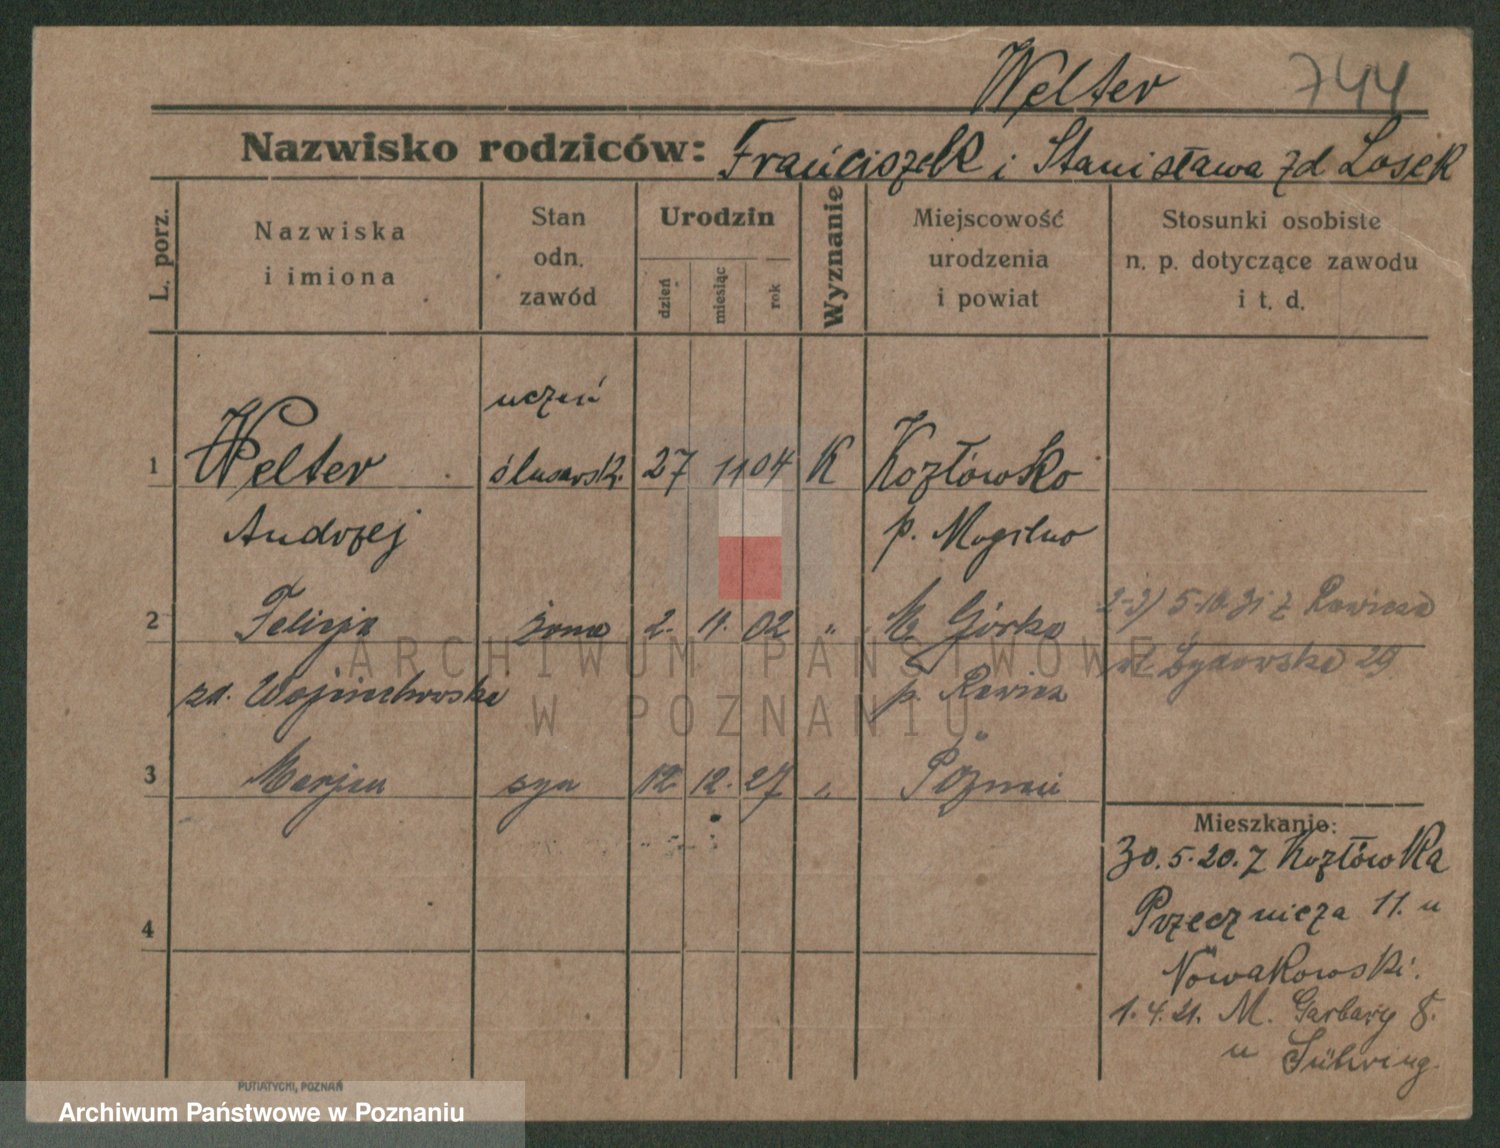 Welter 744
Nazwisko rodziców: Frańciszek i Stanisława zd Losek
L. porz.
Nazwiska
i imiona
Stan
odn.
zawód
Urodzin
dzień
miesiąc
rok
Wyznanie
Miejscowość
urodzenia
i powiat
Stosunki osobiste
n. p. dotyczące zawodu
i t. d.
uczeń
1 Welter ślusarsk. 27 11 04 K Kozłówko
Andrzej p. Mogilno
2 Felicja żona 2. 11. 02 " M. Górka
2-3) 5.10.31 z Rawicza
zd. Wojciechowska p. Rawicz
ul. 29
3 Marjan syn 12. 12. 27 " Poznań
4
Mieszkanie:
30.5.20. z Kozłówka
Przecznicza 11. u
Nowakowski.
1.4.21. M. Garbary 8.
u
ARCHIWUM PAŃSTWOWE
W POZNANIU
PUTIATYCKI, POZNAŃ
Archiwum Państwowe w Poznaniu